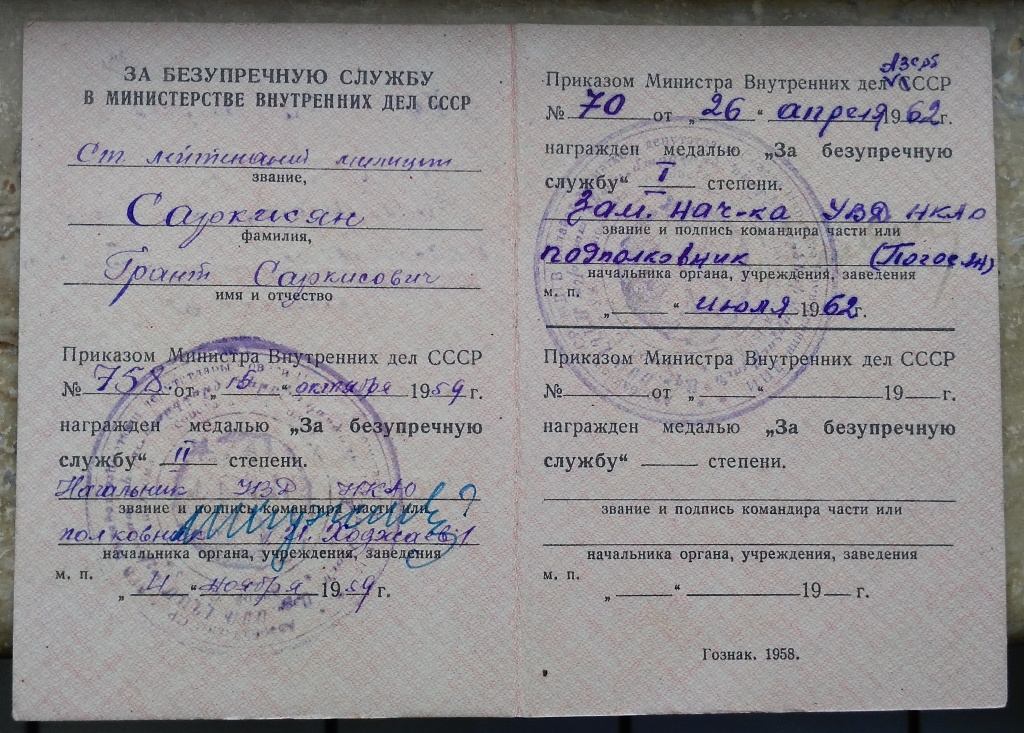 ЗА БЕЗУПРЕЧНУЮ СЛУЖБУ
В МИНИСТЕРСТВЕ ВНУТРЕННИХ ДЕЛ СССР
Ст лейтенант милиции
звание,
Саркисян
фамилия,
Грант Саркисович
имя и отчество
Приказом Министра Внутренних дел СССР
№ 758 от „ 15 " октября 1959 г.
награжден медалью „За безупречную
службу" II степени.
Начальник УВД НКАО
звание и подпись командира части или
полковник Ходжаев
начальника органа, учреждения, заведения
м. п.
„ 11 " ноября 1959 г.
Азерб
Приказом Министра Внутренних дел СССР
№ 70 от „ 26 " апреля 1962 г.
награжден медалью „За безупречную
службу" I степени.
Зам. нач-ка УВД НКАО
звание и подпись командира части или
подполковник (Погосян)
начальника органа, учреждения, заведения
м. п.
„ " июля 1962 г.
Приказом Министра Внутренних дел СССР
№ от „ " 19 г.
награжден медалью „За безупречную
службу" степени.
звание и подпись командира части или
начальника органа, учреждения, заведения
м. п.
„ " 19 г.
Гознак. 1958.